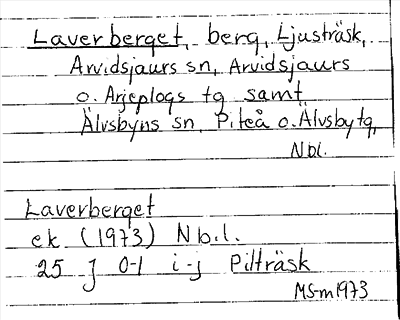 Laverberget, berg, Ljusträsk,
Arvidsjaurs sn, Arvidsjaurs
o. Arjeplogs tg samt
Älvsbyns sn, Piteå o. Älvsby tg,
Nbl.
Laverberget
ek (1973) Nb.l.
25 J 0-1 i-j Pilträsk
MS-m 1973